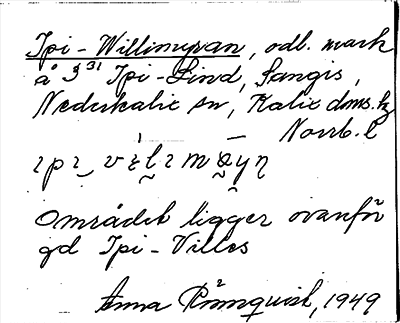 Ipi-Willimyran, odl. mark
å 3³¹ Ipi-Lind, Sangis,
Nederkalix sn, Kalix dms. hg
Norrb. l
området ligger ovanför
gd Ipi-Villes
Anna 1949